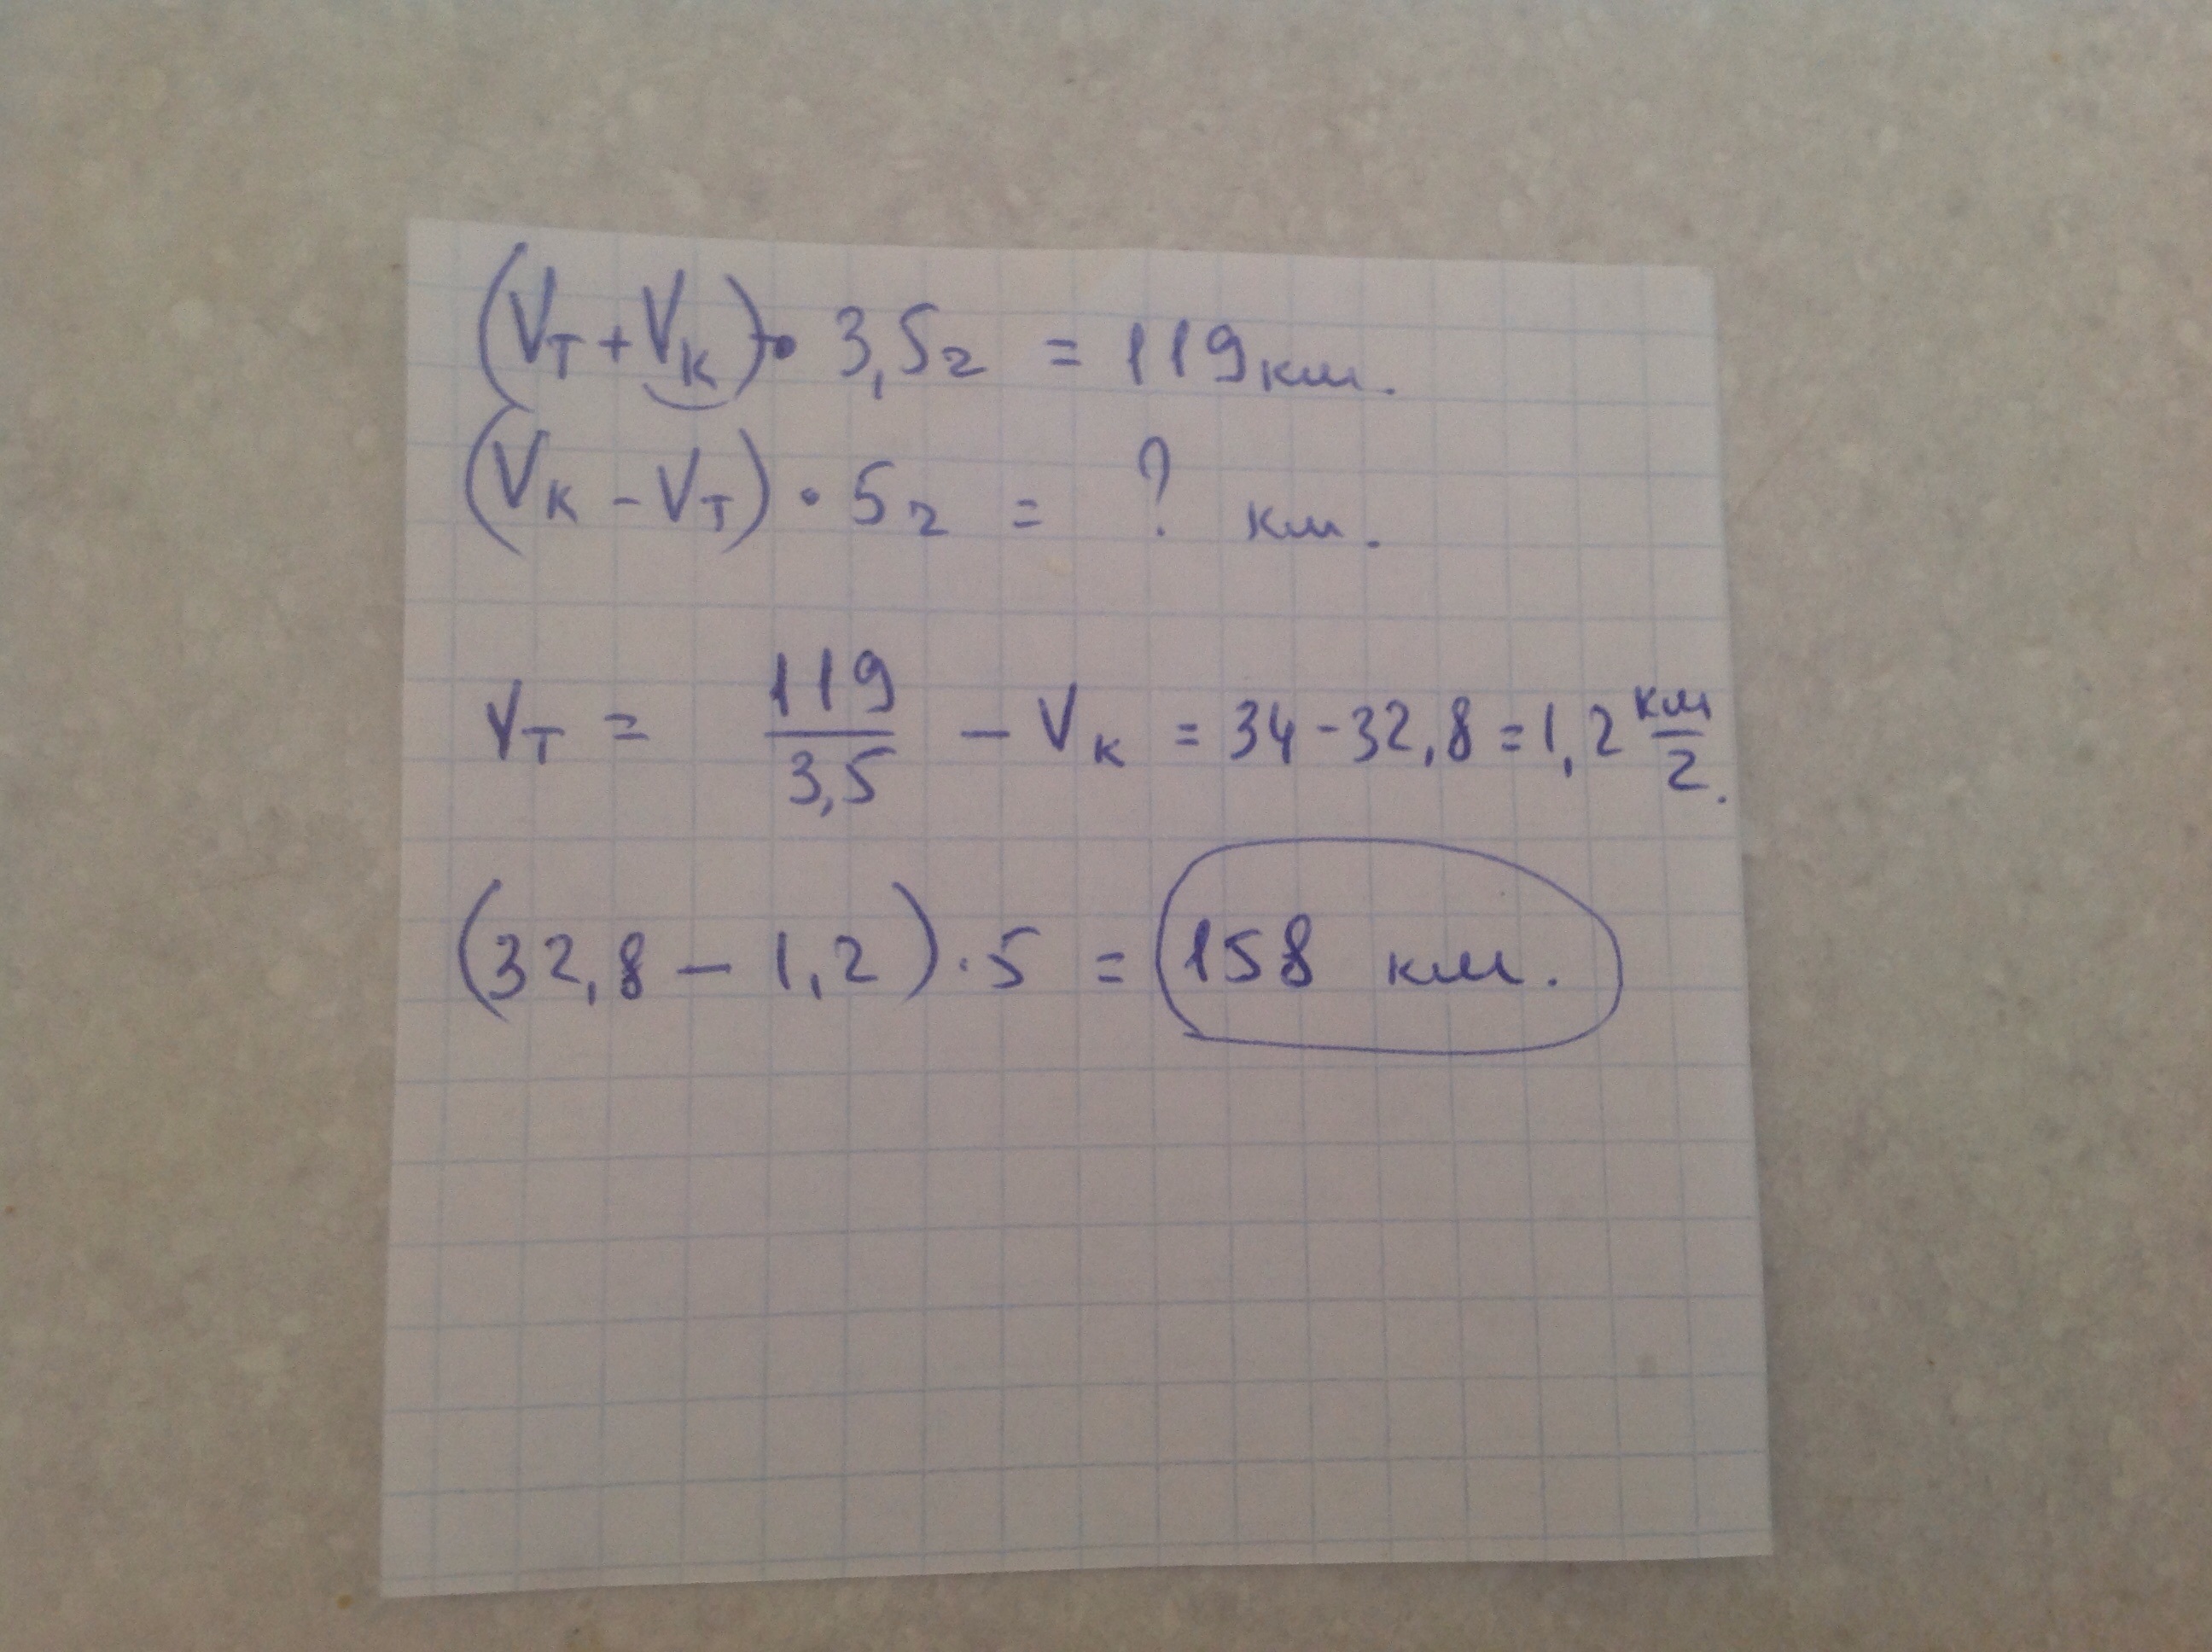 (Vт + Vк) • 3,5 ч = 119 км.
(Vк - Vт) • 5 ч = ? км.
Vт = 119/3,5 - Vк = 34 - 32,8 = 1,2 км/ч.
(32,8 - 1,2) · 5 = 158 км.